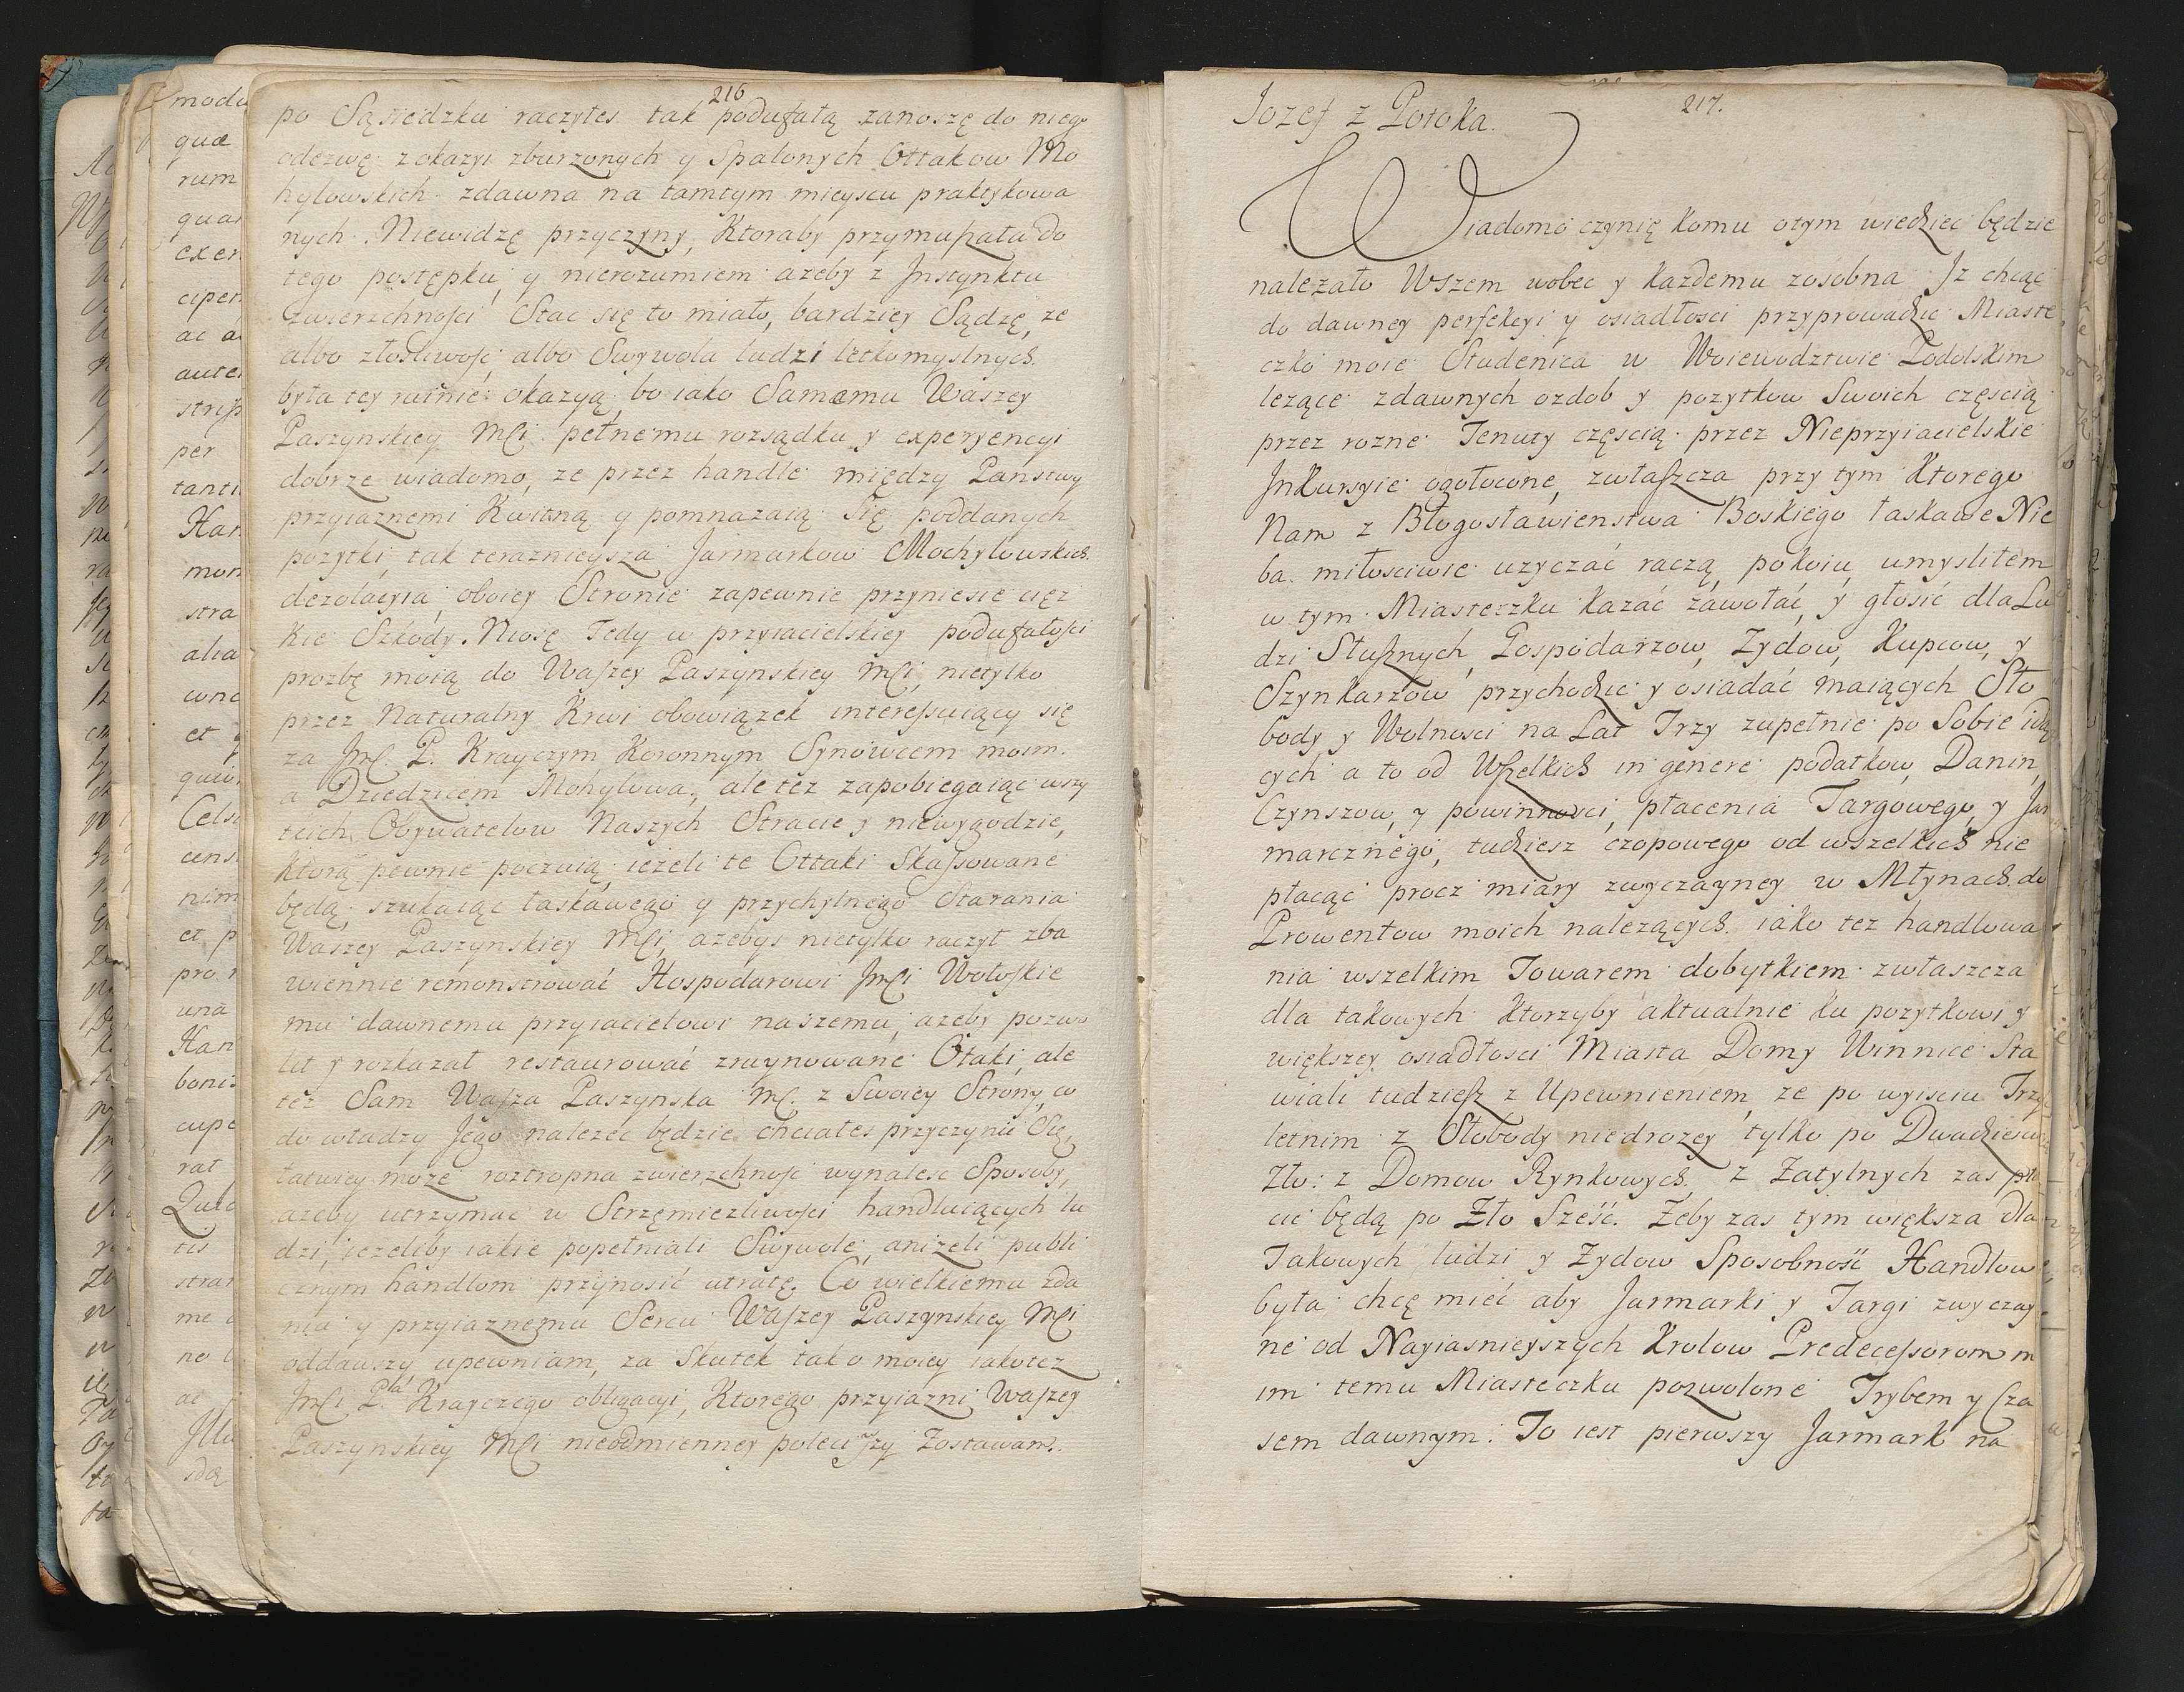 216
po Sąsiedzku raczyłes tak podufałą zanoszę do niego
odezwę z okazyi zburzonych y Spalonych Ottakow Mo
hylowskich zdawna na tamtym mieyscu praktykowa
nych. Niewidzę przyczyny, Ktoraby przymuszała do
tego postępku, y nierozumiem azeby z Jnstynktu
zwierzchnosci Stac się to miało, bardziey Sądzę, ze
albo złosliwosc albo Swywola ludzi letkomyslnych
była tey ruinie okazyą, bo iako Samemu Waszey
Paszynskiey Mci pełnemu rozsądku y experyencyi
dobrze wiadomo, ze przez handle między Panstwy
przyiaznemi Kwitną y pomnazaią Się poddanych
pozytki, tak teraznieysza Jarmarkow Mochylowskich
dezolacyia oboiey Stronie zapewnie przyniesie cięz
kie Szkody. Niosę Tedy w przyiacielskiey podufałosci
prozbę moią do Waszey Paszynskiey Mci, nietylko
przez Naturalny Krwi obowiązek interessuiący się
za Jmc P. Krayczym Koronnym Synowcem moim
a Dziedzicem Mohylowa, ale tez zapobiegaiąc wszy
tkich Obywatelow Naszych Stracie y niewygodzie,
Ktorą pewnie poczuią iezeli te Ottaki Skassowane
będą, szukaiąc łaskawego y przychylnego Starania
Waszey Paszynskiey Mci, azebys nietylko raczył zba
wiennie remonstrować Hospodarowi Jmci Wołoskie
mu dawnemu przyiacielowi naszemu, azeby pozwo
lił y rozkazał restaurować zruynowane Otaki, ale
też Sam Wasza Paszynska Mc. z Swoiey Strony, co
do władzy Jego nalezec będzie chciałes przyczynić Się,
łatwiey moze roztropna zwierzchnosc wynalesc Sposoby,
azeby utrzymac w Strzęmiezliwosci handluiących lu
dzi, iezeliby iakie popełniali Swywole, anizeli publi
cznym handlom przynosić utratę. Co wielkiemu zda
niu y przyiaznemu Sercu Waszey Paszynskiey Mci
oddawszy upewniam, za Skutek tak o moiey iakotez
Jmci Pta Krayczego obligacyi, Ktorego przyiazni Waszey
Paszynskiey Mci nieodmienney poleciwszy Zostawam.
217.
Jozef z Potoka.
Wiadomo czynię komu otym wiedziec będzie
nalezało Wszem wobec y kazdemu zosobna Jz chcąc
do dawney perfekcyi y osiadłosci przyprowadzic Miaste
czko moie Studenica w Woiewodztwie Podolskim
lezące zdawnych ozdob y pozytkow Swoich częscią
przez rozne Tenuty częscią przez Nieprzyiacielskie
Jnkursyie ogołocone, zwłaszcza przy tym Ktorego
Nam z Błogosławienstwa Boskiego łaskawe Nie
ba miłosciwie uzyczać raczą, pokoiu umysliłem
w tym Miasteczku kazać zawołać, y głosić dla Lu
dzi Słusznych, Gospodarzow, Zydow, Kupcow, y
Szynkarzow przychodzic y osiadać maiących Sło
body y Wolnosci na Lat Trzy zupełnie po Sobie idą
cych a to od Wszelkich in genere podatkow, Danin,
Czynszow, y powinnosci, płacenia Targowego, y Jar
marcznego, tudziesz czopowego od wszelkich nie
płacąc procz miary zwyczayney w Młynach do
Prowentow moich nalezących iako tez handlowa
nia wszelkim Towarem dobytkiem zwłaszcza
dla takowych Ktorzyby aktualnie ku pozytkowi y
większey osiadłosci Miasta Domy Winnice Sta
wiali tudziesz z Upewnieniem, ze po wyisciu Trzy
letnim z Słobody niedrozey tylko po Dwadziescia
Zło: z Domow Rynkowych z Zatylnych zas pła
cić będą po Zło Sześć. Zeby zas tym większa dla
Takowych ludzi y Zydow Sposobność Handlow
była chcę mieć aby Jarmarki y Targi zwyczay
ne od Nayiasnieyszych Krolow Predecessorow m
im temu Miasteczku pozwolone Trybem y Cza
sem dawnym: To iest pierwszy Jarmark na